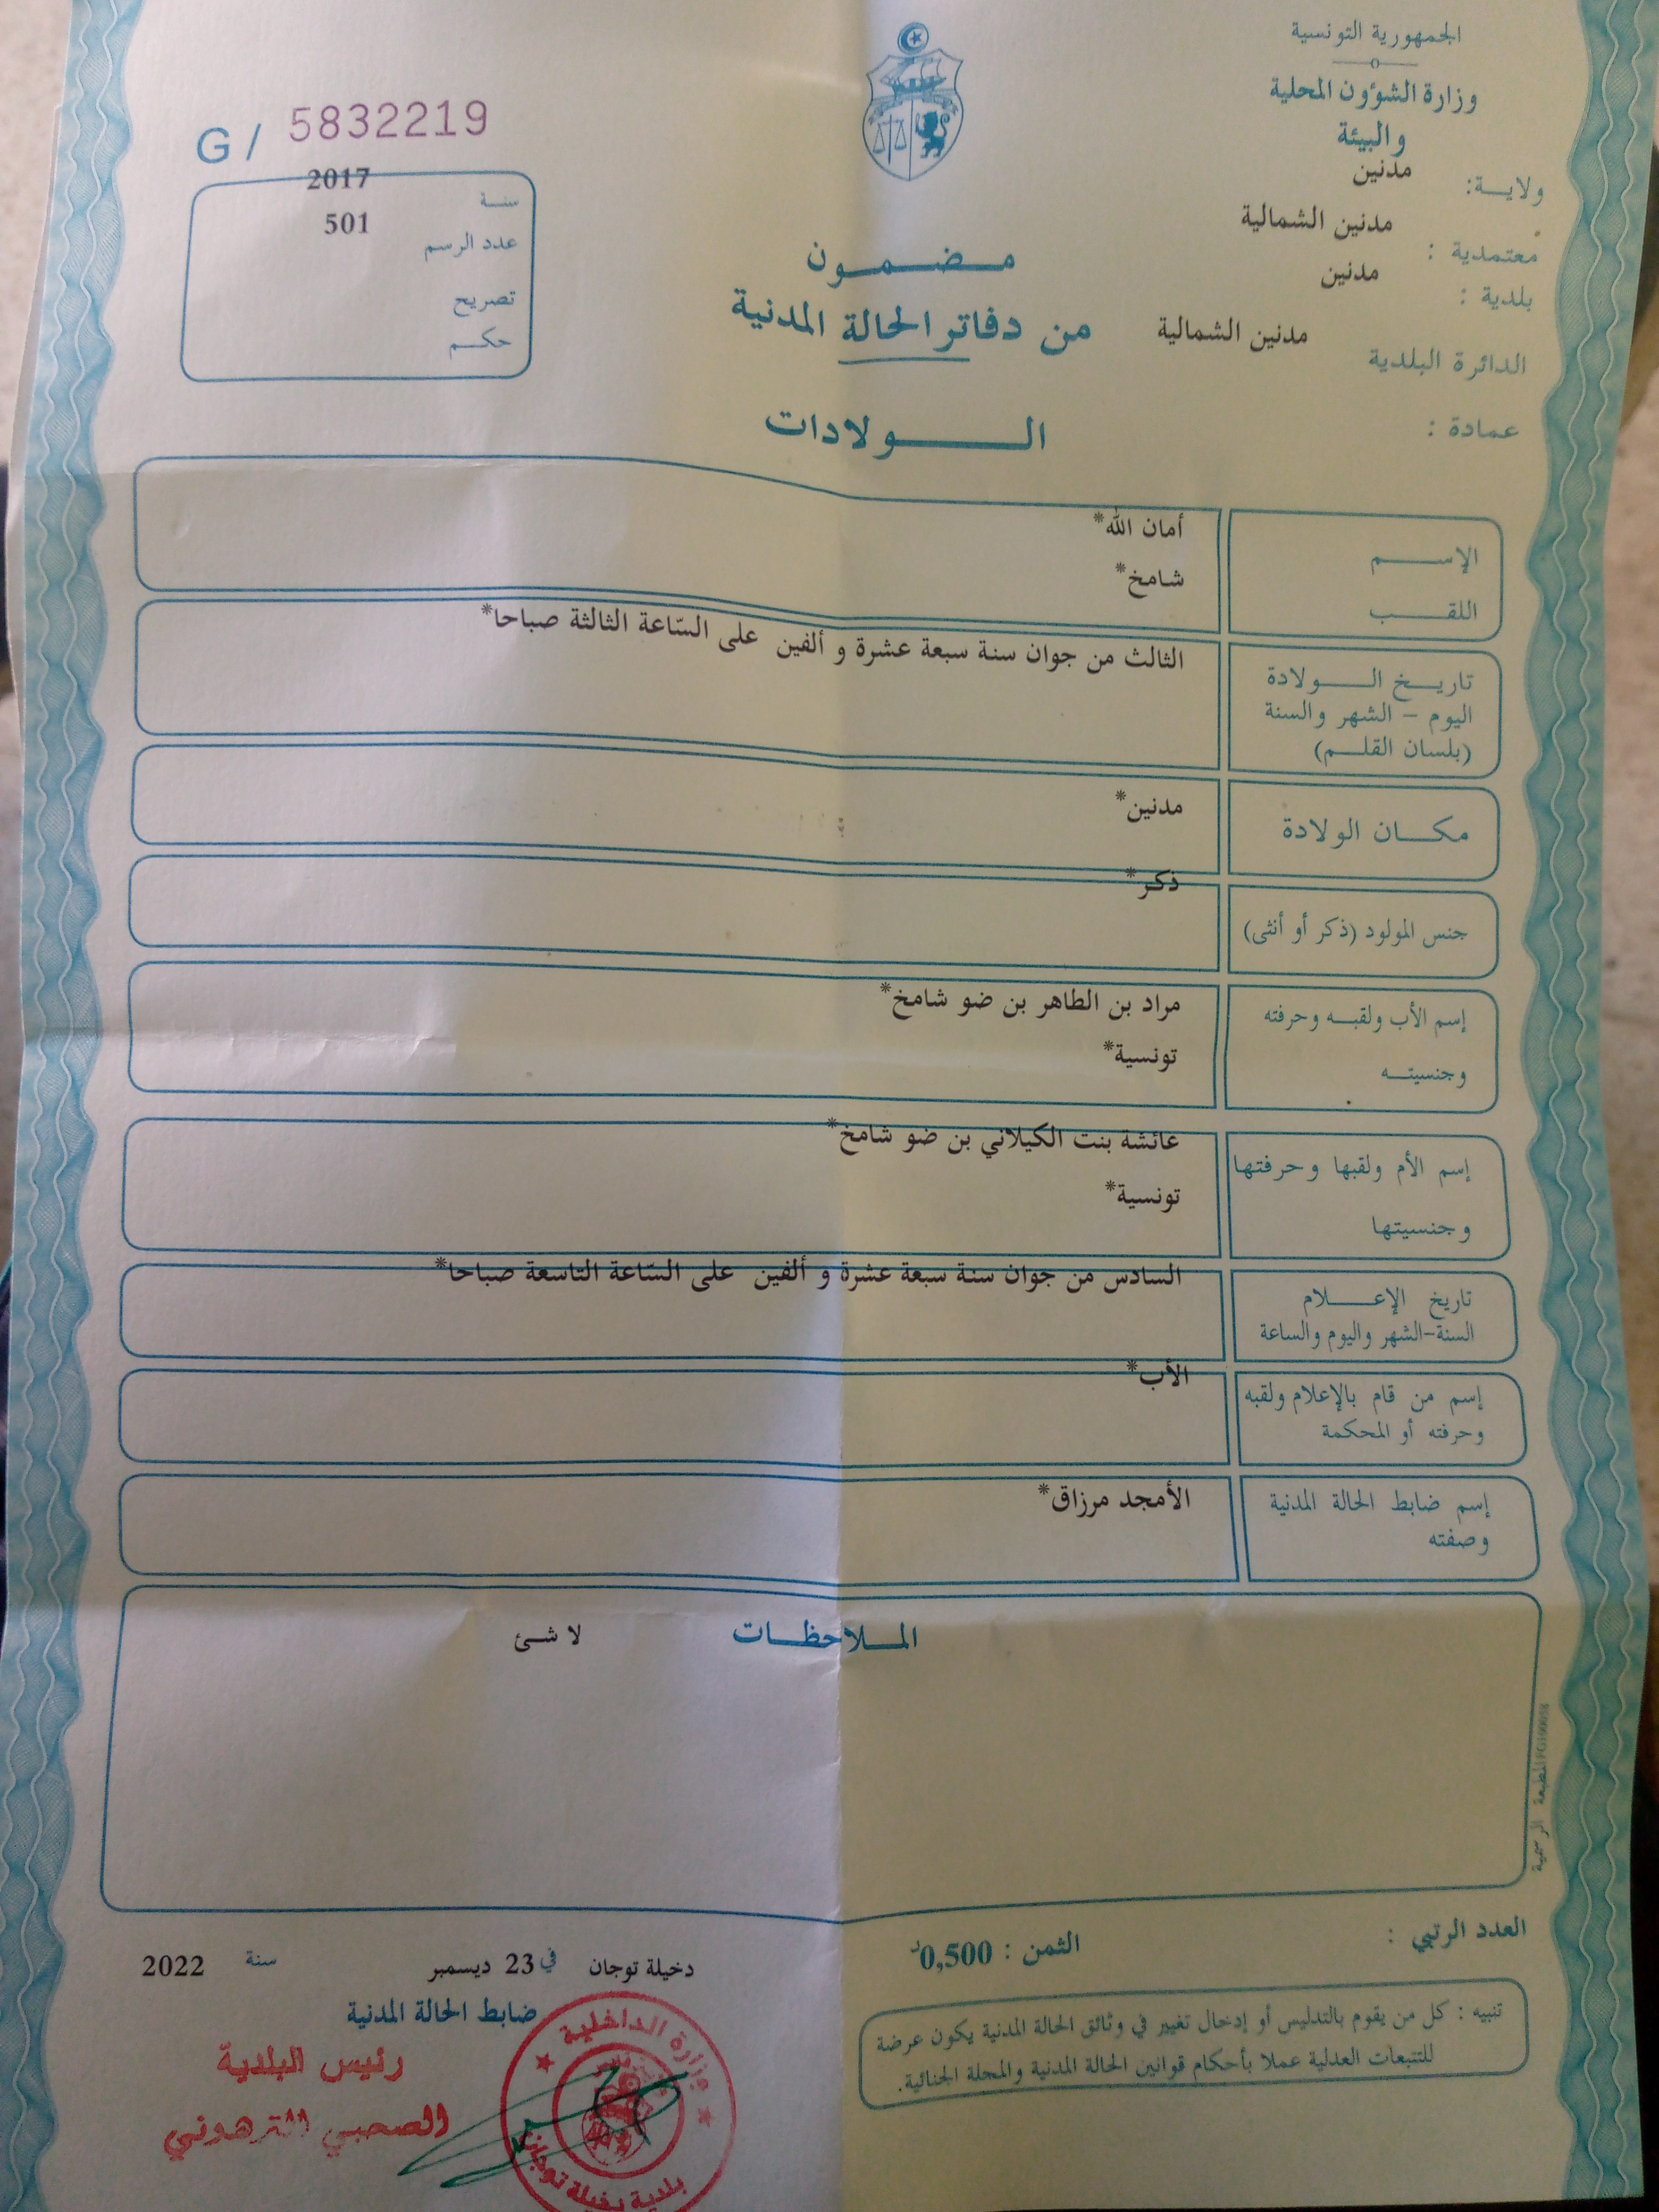 الجمهورية التونسية
وزارة الشؤون المحلية
والبيئة
ولايـــة: مدنين
معتمدية : مدنين الشمالية
بلدية : مدنين
الدائرة البلدية مدنين الشمالية
عمادة :
G / 5832219
سنــة 2017
عدد الرسم 501
تصريح
حكــم
مـضـمـون
من دفاتر الحالة المدنية
الـــولادات
الإســـم أمان الله*
اللقــب شامخ*
تاريـــخ الــــولادة
اليوم - الشهر والسنة
(بلسان القلــم)
الثالث من جوان سنة سبعة عشرة و ألفين على السّاعة الثالثة صباحا*
مكـــان الولادة مدنين*
جنس المولود (ذكر أو أنثى) ذكر*
إسم الأب ولقبــه وحرفته مراد بن الطاهر بن ضو شامخ*
وجنسيتــه تونسية*
إسم الأم ولقبها وحرفتها عائشة بنت الكيلاني بن ضو شامخ*
وجنسيتها تونسية*
تاريخ الإعــــلام
السنة-الشهر واليوم والساعة
السادس من جوان سنة سبعة عشرة و ألفين على السّاعة التاسعة صباحا*
إسم من قام بالإعلام ولقبه
وحرفته أو المحكمة
الأب*
إسم ضابط الحالة المدنية
وصفته
الأمجد مرزاق*
المــلاحظــات لا شئ
المطبعة الرسمية
العدد الرتبي :
الثمن : 0,500د
تنبيه : كل من يقوم بالتدليس أو إدخال تغيير في وثائق الحالة المدنية يكون عرضة
للتتبعات العدلية عملا بأحكام قوانين الحالة المدنية والمجلة الجنائية.
دخيلة توجان في 23 ديسمبر سنة 2022
ضابط الحالة المدنية
رئيس البلدية
الصحبي الترهوني
وزارة الداخلية
بلدية دخيلة توجان